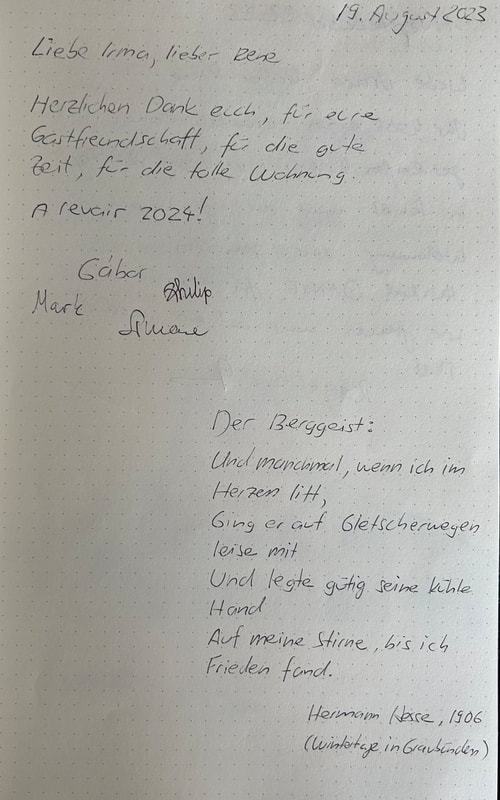 19. August 2023
Liebe Irma, lieber Rene
Herzlichen Dank euch, für eure
Gastfreundschaft, für die gute
Zeit, für die tolle Wohnung.
A revair 2024!
Gábor
Philip
Mark
Simone
Der Berggeist:
Und manchmal, wenn ich im
Herzen litt,
Ging er auf Gletscherwegen
leise mit
Und legte gütig seine kühle
Hand
Auf meine Stirne, bis ich
Frieden fand.
Hermann Hesse, 1906
(Wintertage in Graubünden)